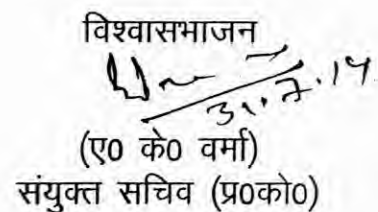 विश्वासभाजन
31.7.14
(ए0 के0 वर्मा)
संयुक्त सचिव (प्र0को0)